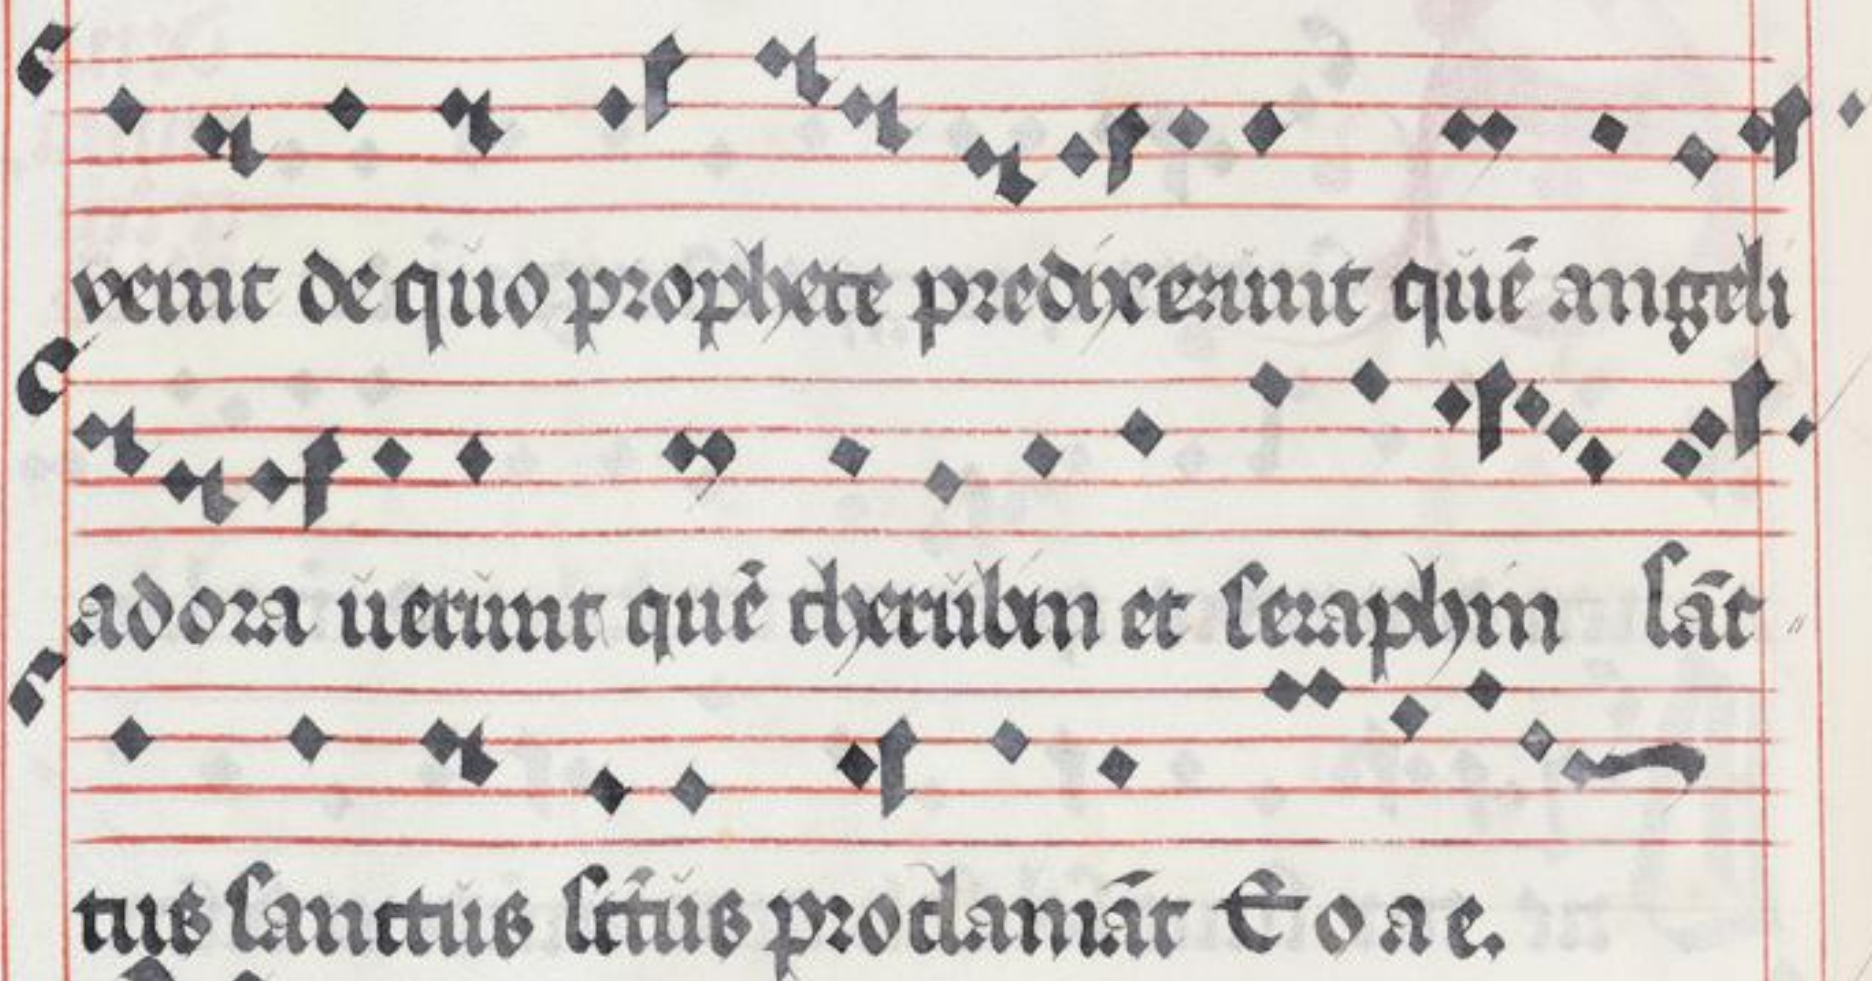 venit de quo prophete predixerunt quē angeli
adora uerunt quē cherubin et seraphin sāc
tus sanctus sc̄tus proclamāt Eoae.